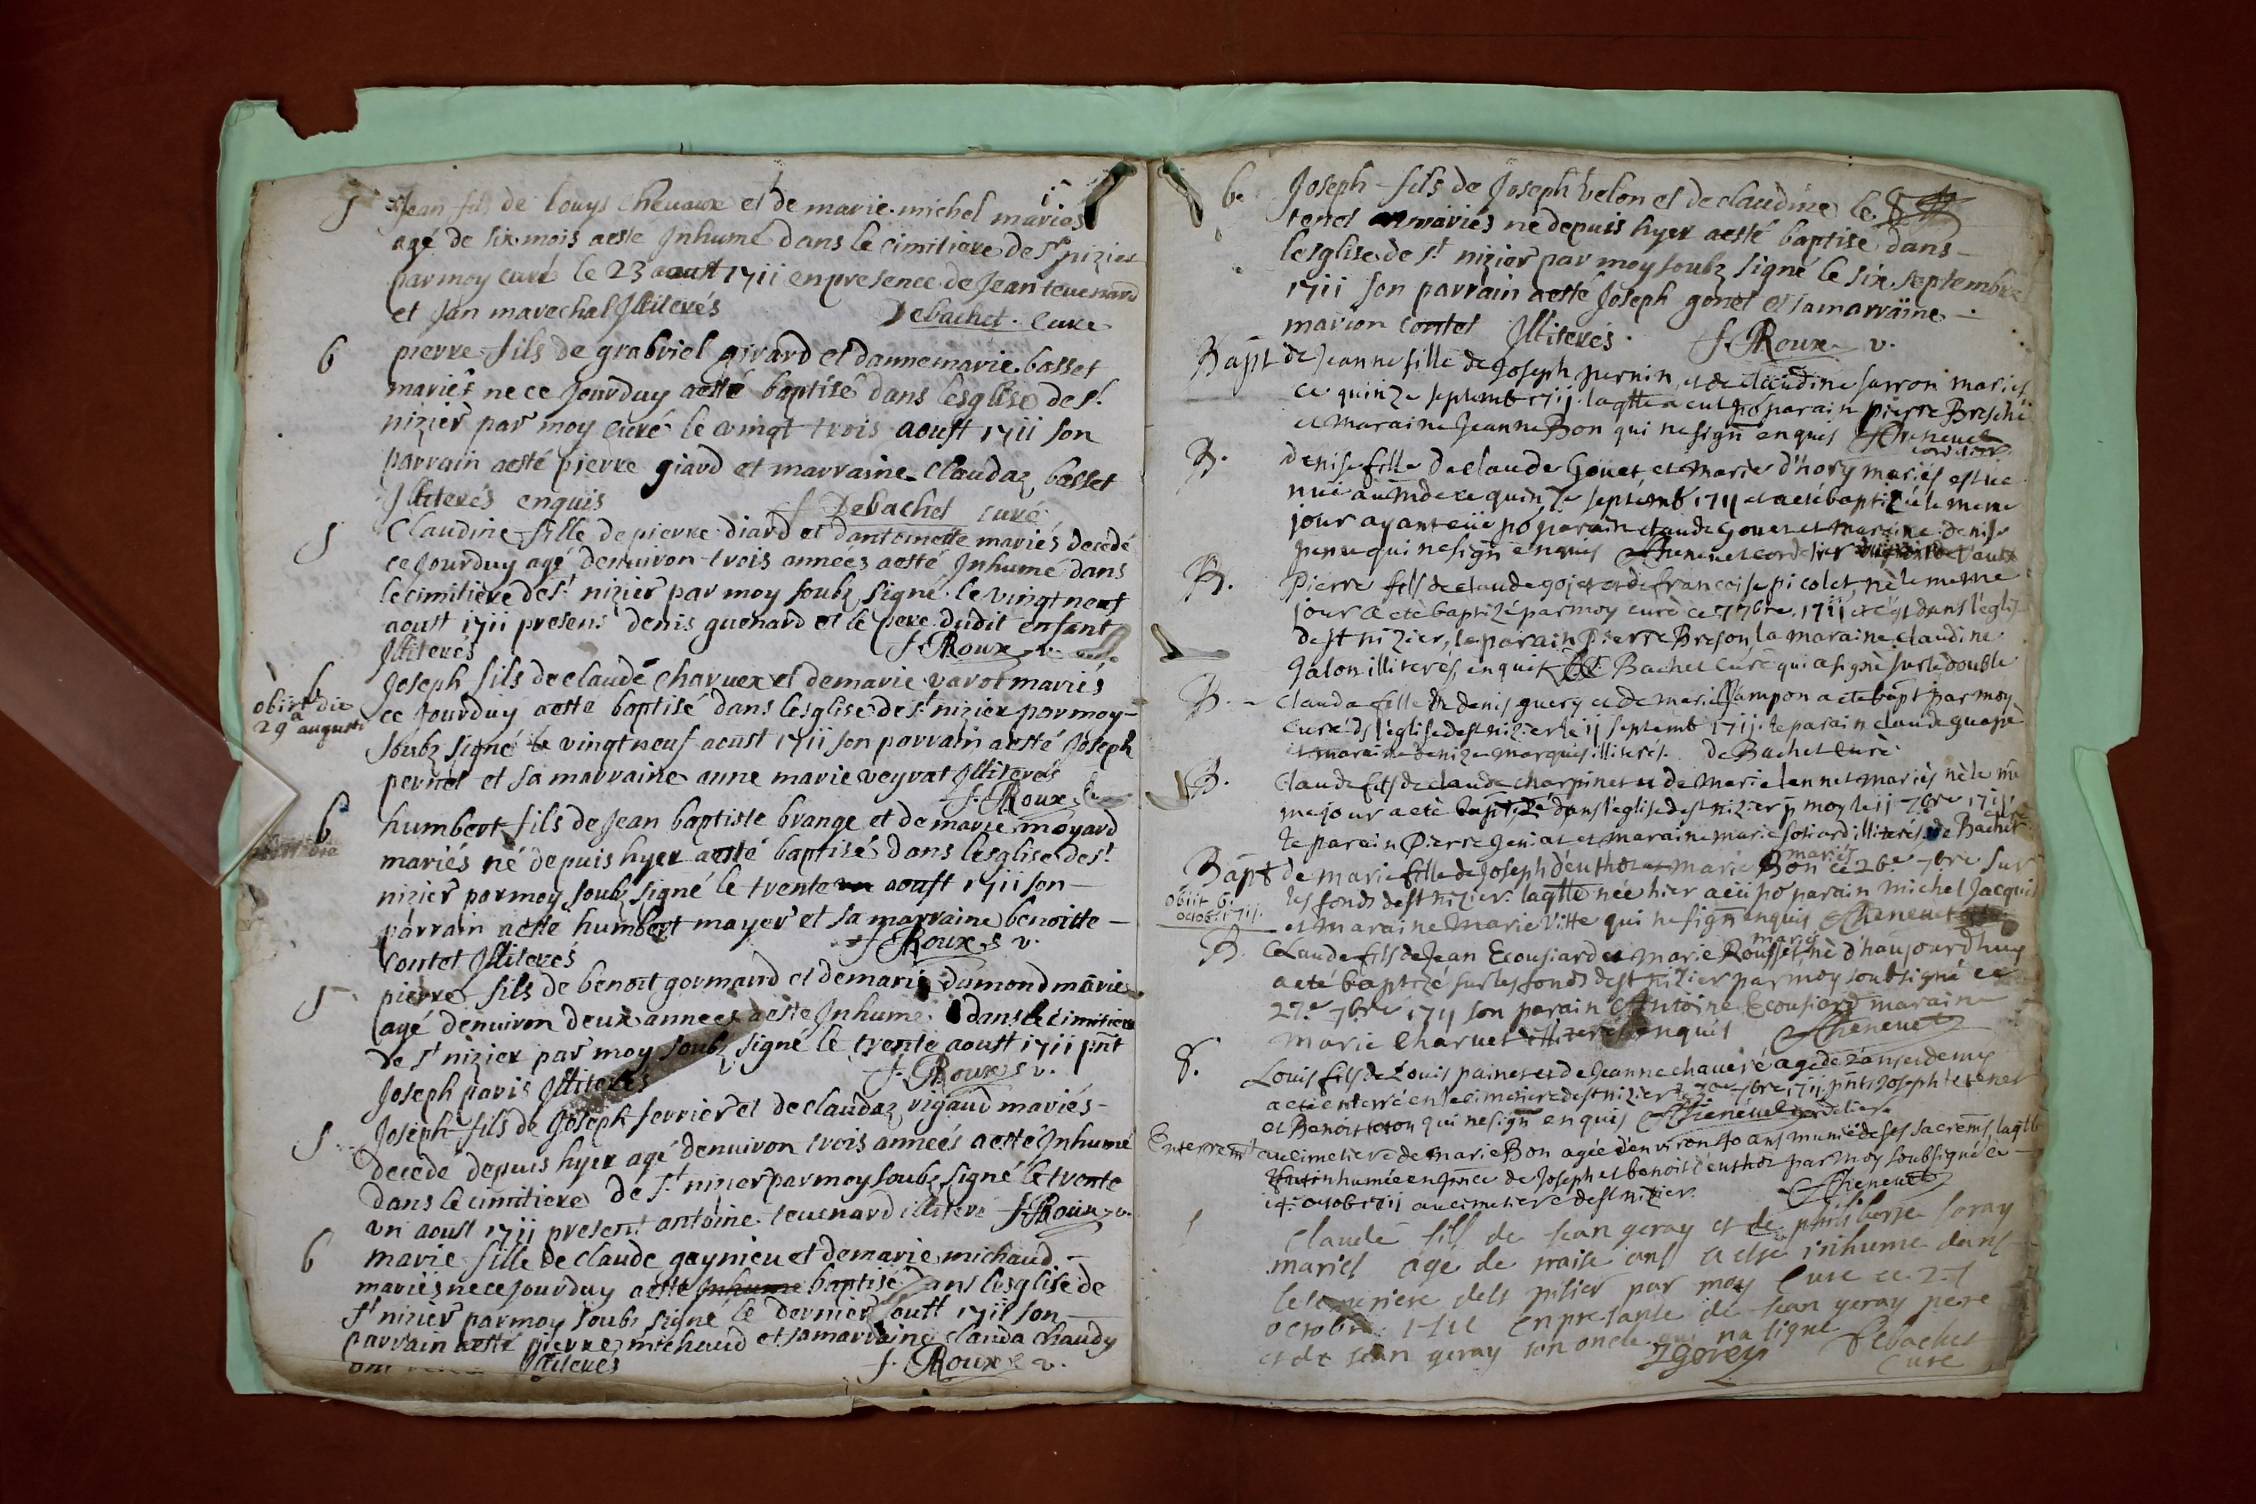 S Jean fils de louys Chevaux et de marie michel mariés
agé de six mois aesté Jnhumé dans le cimitiere de St nizier
par moy curé le 23 aoust 1711 en presence de Jean tevenard
et Jan marechal Jlliterés Debachet. Cure
b pierre fils de grabriel girard et danne marie basset
mariés ne ce jourduy aesté baptisé dans lesglise de St
nizier par moy curé le vingt trois aoust 1711 son
parrain aesté pierre giard et marraine Claudaz basset
Jlliterés enquis f Debachet curé
S Claudine fille de pierre diard et dantoinette mariés decedé
ce jourduy agé denuiron trois années aesté Jnhumé dans
le cimitiere de St nizier par moy soubz signé le vingt neuf
aoust 1711 presens denis guenard et le pere dudit enfant
Jlliterés f. Roux v.
b Joseph fils de claude charuex et de marie varot mariés
obiit die
29a augusti
ce jourduy aesté baptisé dans lesglise de St nizier par moy
soubz signé le vingt neuf aoust 1711 son parrain aesté Joseph
pernet et sa marraine anne marie veyrat Jlliterés
f. Roux
b humbert fils de Jean baptiste brange et de marie moyard
mariés né depuis hyer aesté baptisé dans lesglise de St
nizier par moy soubz signé le trente aoust 1711 son
parrain aesté humbert mayer et sa marraine benoitte
contet Jlliterés f Roux v.
S pierre fils de benoit gormand et de marie dumond mariés
agé denuiron deux annees aesté Jnhumé dans le cimitiere
de St nizier par moy soubz signé le trente aoust 1711 pnt
Joseph paris Jlliterés f. Roux v.
S Joseph fils de Joseph ferrier et de claudaz rigaud mariés
decedé depuis hyer agé denuiron trois années aesté Jnhumé
dans le cimitiere de St nizier par moy soubz signé le trente
vn aoust 1711 present antoine teuenard illiteré f. Roux v.
b marie fille de claude gaynieu et de marie michaud
mariés ne ce jourduy aesté Jnhume baptisé dans lesglise de
St nizier par moy soubz signé le dernier aoust 1711 son
parrain aesté pierre michaud et sa marraine clauda chaudy
Jlliterés f. Roux v.
b. Joseph fils de Joseph velon et de claudine le
tenet mariés né depuis hyer aesté baptisé dans
lesglise de St nizier par moy soubz signé le six septembre
1711 son parrain aesté Joseph gonet et sa marraine
marion contet Jlliterés. f. Roux v.
Bapt de Jeanne fille de Joseph pernin et de claudine sarron mariés
ce quinze septemb 1711. laqtte a eu po parain pierre Breschi
et maraine Jeanne Bon qui ne sign enquis Cheneuet
cordelier
B. Denise fille de claude Goüet et marie d'hory mariés est
neé ce quinze septemb 1711 et a eté baptizée le meme
jour ayant eüe po parain claude Gouet et maraine denise
qui ne sign enquis Cheneuet cordelier
B. Pierre fils de claude gojet et de francoise picolet, nè le meme
jour a eté baptizé par moy curé ce 7bre 1711 dans l'eglise
de st nizier, le parain Pierre Breson, la maraine claudine
Jalon illiterés, enquis Bachet curé qui a signé sur le double
B. Clauda fille de denis guery et de marie Jampon a eté bapt par moy
curé ds l'église de st nizier le 11 septemb 1711. le parain claude
et maraine denize marquis illiterés. de Bachet curé
B. Claude fils de claude charpinet et de marie lannet mariés nè le me
me jour a eté baptizé dans l'eglise de st nizier p moy le 11 7bre 1711.
le parain Pierre Jeniat et maraine marie illiterés de Bachet curé
Bapt de marie fille de Joseph d'euthoz et marie Bon mariés ce 26e 7bre sur
obiit 6.
octob. 1711.
les fonds de st nizier. laqtte née hier a eü po parain michel Jacquis
et maraine marie vitte qui ne sign enquis Cheneuet
B. Claude fils de Jean Ecousiard et marie Rousset mariés nè d'haujourd'huy
a eté baptizé sur les fonds de st nizier par moy soubsigné ce
27e 7bre 1711 son parain Antoine Ecousiard maraine
marie Charuet illiterés enquis Cheneuet
S. Louis fils de Louis painet et de Jeanne chaueré agé de 2 ans et demy
a eté enterré en le cimetiere de st nizier 7bre 1711 pnts Joseph tetenet
et Benoit qui ne sign enquis Cheneuet cordelier
Enterremt au cimetiere de marie Bon agée d'environ 40 ans munie de ses sacrems laqtte
fut inhumée en pnce de Joseph et benoit d'euthoz par moy soubsigné ce
14e octob 1711 au cimetiere de st nizier. Cheneuet
Claude fils de Jean geray et de philiberte
mariés agé de ans a esté inhumé dans
le cimetiere de st nisier par moy Curé ce
octobre 1711 en presance de Jean geray pere
et de Jean geray son oncle qui na signé Debachet
Jgerey Curé